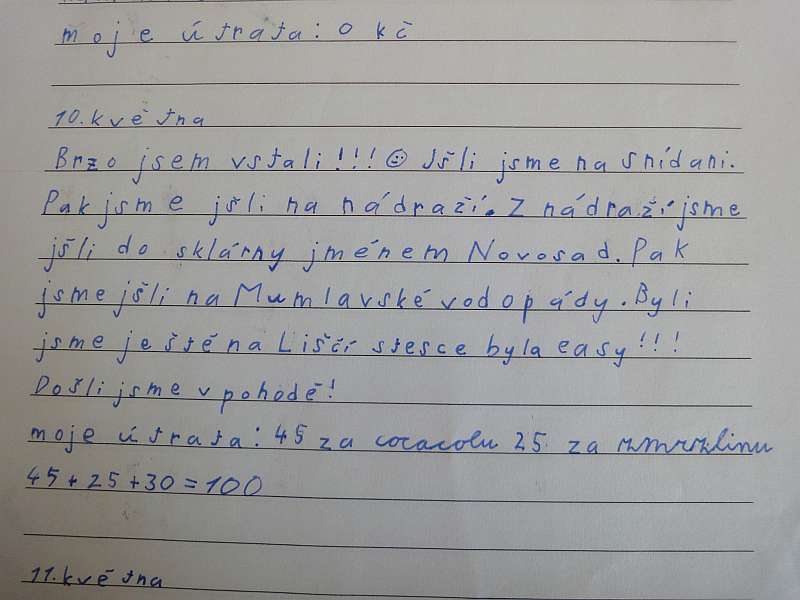 moje útrata: 0 kč
10. května
Brzo jsem vstali!!! ☺ Jšli jsme na snídani.
Pak jsme jšli na nádraží. Z nádraží jsme
jšli do sklárny jménem Novosad. Pak
jsme jšli na Mumlavské vodopády. Byli
jsme ještě na Liščí stesce byla easy!!!
Došli jsme v pohodě!
moje útrata: 45 za cocacolu 25 za zmrzlinu
45 + 25 + 30 = 100
11. května